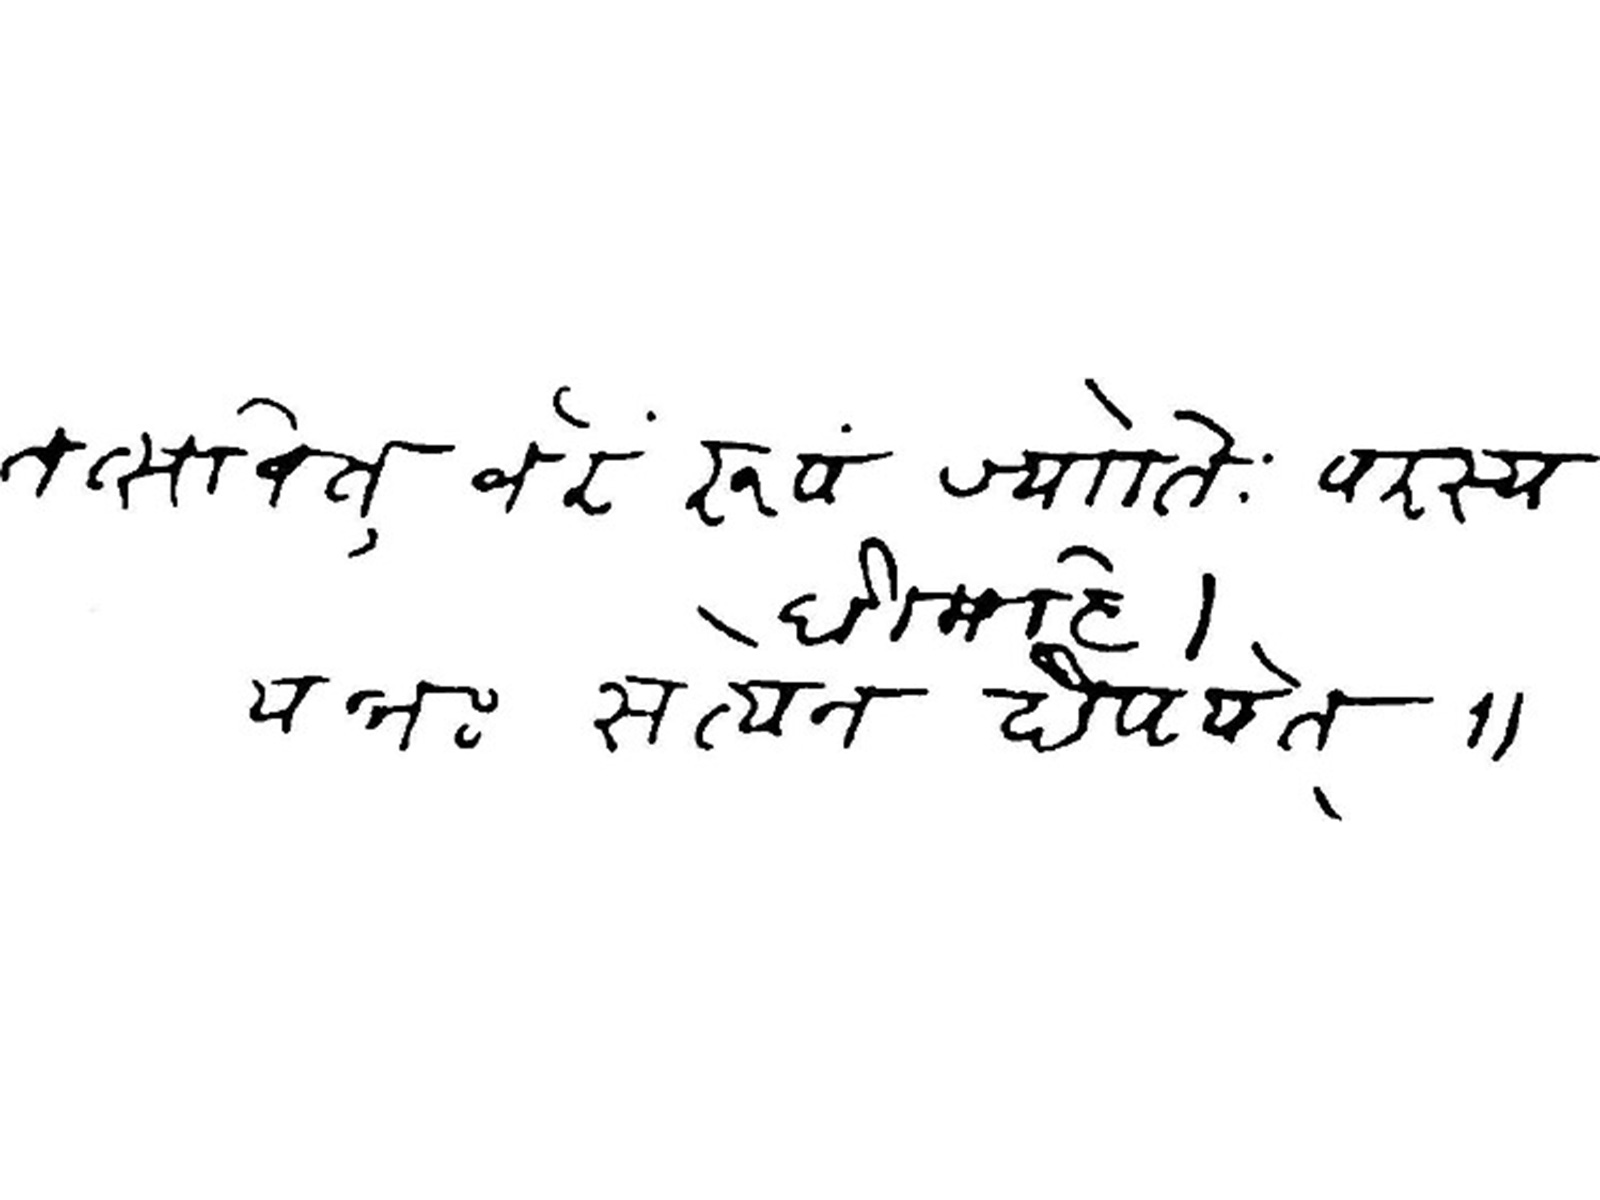 तत्सवितु र्वरं रूपं ज्योतिः परस्य
धीमहि।
यन्नः सत्येन दीपयेत् ॥